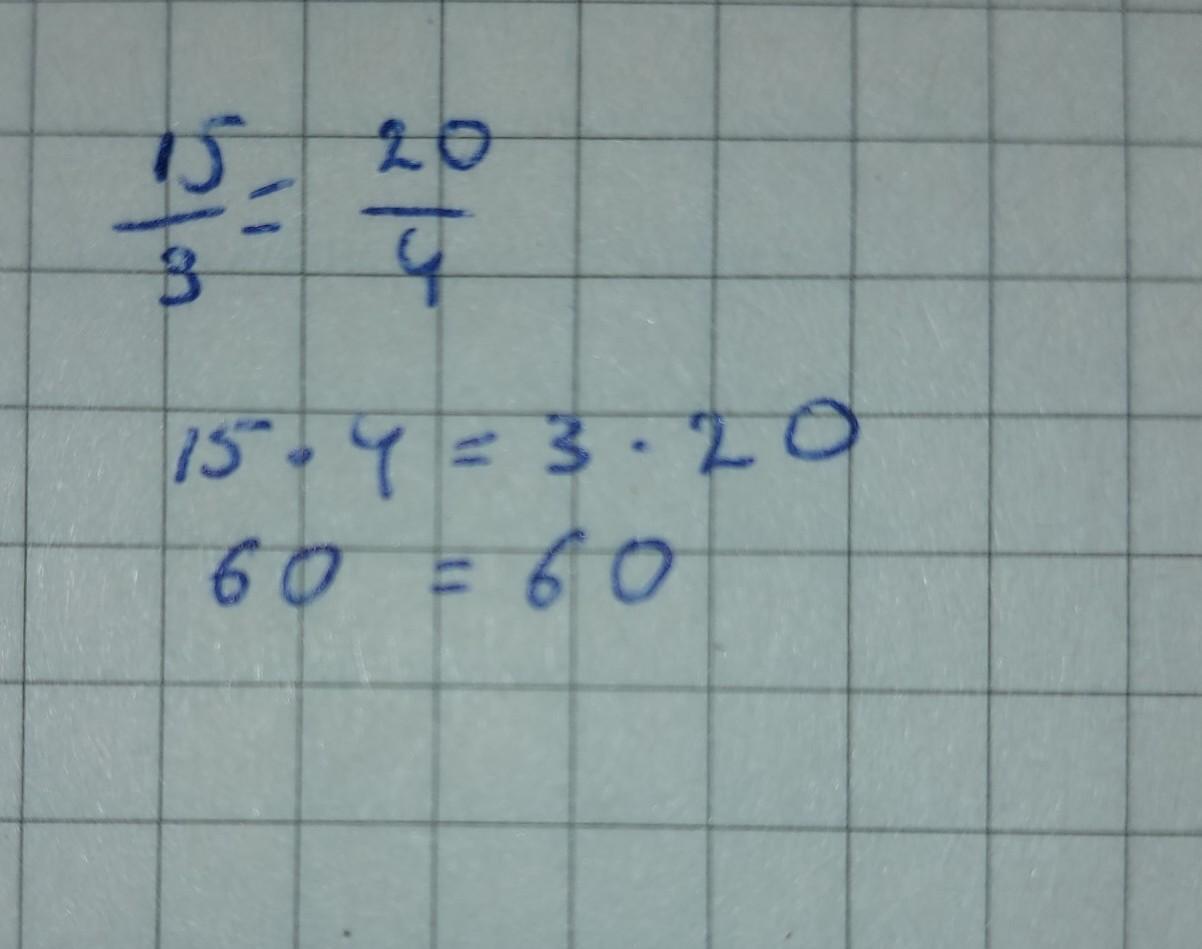 15/3 = 20/4
15 · 4 = 3 · 20
60 = 60